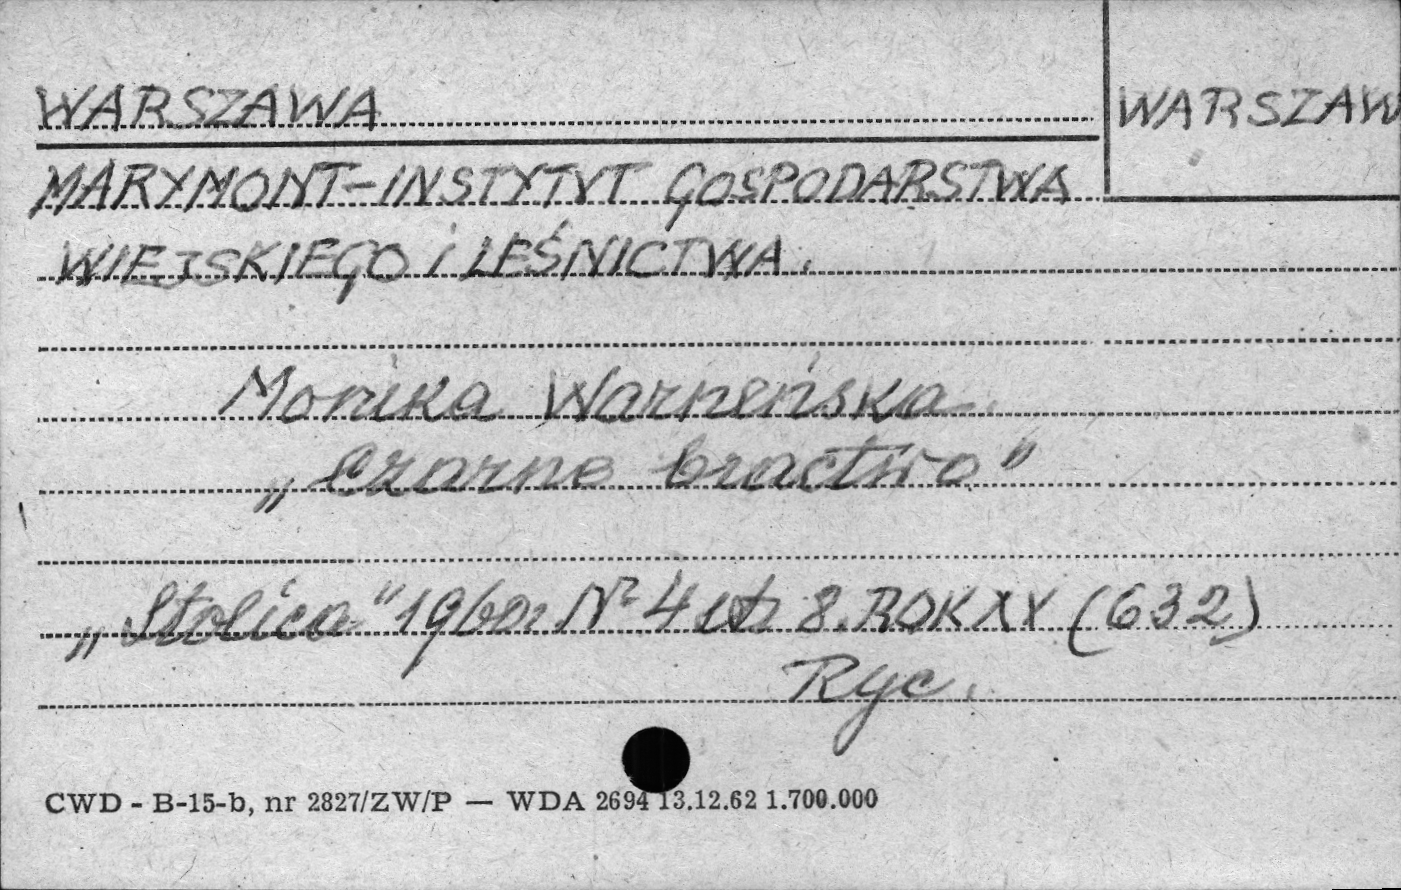 WARSZAWA
WARSZAW
MARYMONT-INSTYTYT GOSPODARSTWA
WIEJSKIEGO i LEŚNICTWA.
Monika Warneńska
„Czarne bractwo"
„Stolica" 1960r Nr 4 str 8. ROK XV (632)
Ryc.
CWD - B-15-b, nr 2827/ZW/P — WDA 2694 13.12.62 1.700.000